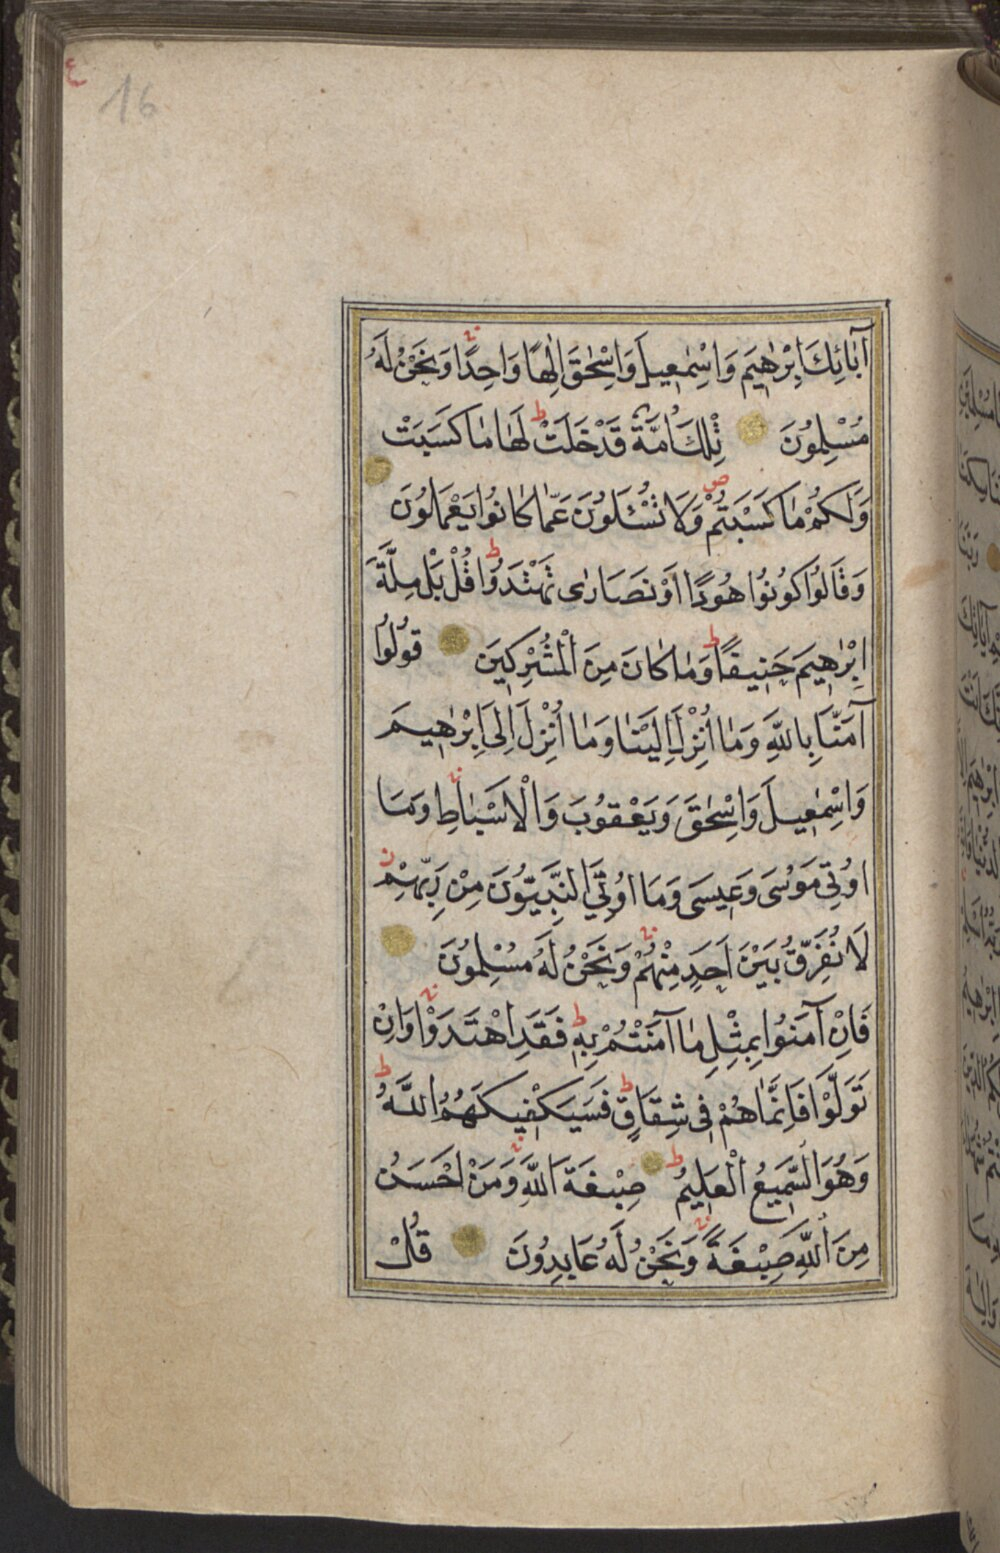 ١٦
آبَائِكَ اِبْرٰهِيمَ وَاِسْمٰعِيلَ وَاِسْحٰقَ اِلٰهًا وَاحِدًا وَنَحْنُ لَهُ
مُسْلِمُونَ تِلْكَ اُمَّةٌ قَدْ خَلَتْ لَهَا مَا كَسَبَتْ
وَلَكُمْ مَا كَسَبْتُمْ وَلَا تُسْئَلُونَ عَمَّا كَانُوا يَعْمَلُونَ
وَقَالُوا كُونُوا هُودًا اَوْ نَصَارٰى تَهْتَدُوا قُلْ بَلْ مِلَّةَ
اِبْرٰهِيمَ حَنِيفًا وَمَا كَانَ مِنَ الْمُشْرِكِينَ قُولُوا
آمَنَّا بِاللّٰهِ وَمَا اُنْزِلَ اِلَيْنَا وَمَا اُنْزِلَ اِلٰى اِبْرٰهِيمَ
وَاِسْمٰعِيلَ وَاِسْحٰقَ وَيَعْقُوبَ وَالْاَسْبَاطِ وَمَا
اُوتِيَ مُوسٰى وَعِيسٰى وَمَا اُوتِيَ النَّبِيُّونَ مِنْ رَبِّهِمْ
لَا نُفَرِّقُ بَيْنَ اَحَدٍ مِنْهُمْ وَنَحْنُ لَهُ مُسْلِمُونَ
فَاِنْ آمَنُوا بِمِثْلِ مَا آمَنْتُمْ بِهِ فَقَدِ اهْتَدَوْا وَاِنْ
تَوَلَّوْا فَاِنَّمَا هُمْ فِى شِقَاقٍ فَسَيَكْفِيكَهُمُ اللّٰهُ
وَهُوَ السَّمِيعُ الْعَلِيمُ صِبْغَةَ اللّٰهِ وَمَنْ اَحْسَنُ
مِنَ اللّٰهِ صِبْغَةً وَنَحْنُ لَهُ عَابِدُونَ قُلْ